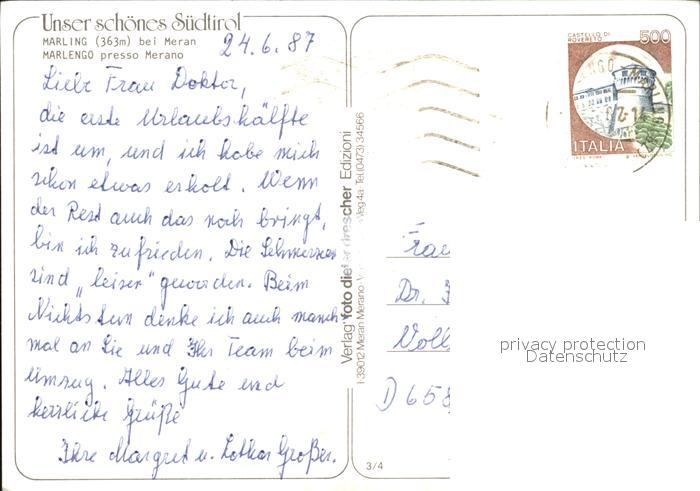 Unser schönes Südtirol
MARLING (363m) bei Meran
MARLENGO presso Merano
24.6.87
Liebe Frau Doktor,
die erste Urlaubshälfte
ist um, und ich habe mich
schon etwas erholt. Wenn
der Rest auch das noch bringt,
bin ich zufrieden. Die Schmerzen
sind "leiser" geworden. Beim
Nichtstun denke ich auch manch-
mal an Sie und Ihr Team beim
Umzug. Alles Gute und
herzliche Grüße
Ihre Margret u. Lothar Großer.
Verlag: foto dieter drescher Edizioni
I-39012 Meran Merano - 4a · Tel. (0473) 34566
3/4
CASTELLO DI
ROVERETO
500
ITALIA
Frau
Dr.
Voll
D 658
privacy protection
Datenschutz